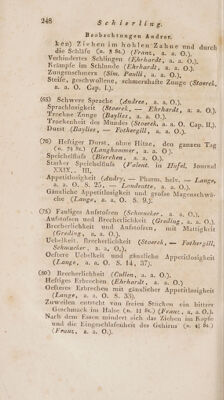 248 Schierling.
Beobachtungen Andrer.
ken) Ziehen im hohlen Zahne und durch
die Schläfe (n. 8 St.) (Franz, a. a. O.).
Verhindertes Schlingen (Ehrhardt, a. a. O.).
Krämpfe im Schlunde (Ehrhardt, a. a. O.).
Zungenschmerz (Sim. Paulli, a. a. O.).
Steife, geschwollene, schmerzhafte Zunge (Stoerck,
a. a. O. Cap. I.).
(65) Schwere Sprache (Andree, a. a. O.).
Sprachlosigkeit (Stoerck, — Ehrhardt, a. a. O.).
Trockne Zunge (Baylies, a. a. O.).
Trockenheit des Mundes (Stoerck, a. a. O. Cap. II.).
Durst (Baylies, — Fothergill, a. a. O.).
(70) Heftiger Durst, ohne Hitze, den ganzen Tag
(n. 72 St.) (Langhammer, a. a. O.).
Speichelfluß (Bierchen, a. a. O.).
Starker Speichelfluß (Valent. in Hufel. Journal
XXIX., III.
Appetitlosigkeit (Andry, — Pharm. helv. — Lange,
a. a. O. S. 25, — Landeutte, a. a. O.).
Gänzliche Appetitlosigkeit und große Magenschwä-
che (Lange, a. a. O. S. 9.).
(75) Fauliges Aufstoßen (Schmucker, a. a. O.).
Aufstoßen und Brecherlichkeit (Greding, a. a. O.).
Brecherlichkeit und Aufstoßen, mit Mattigkeit
(Greding, a. a. O.).
Uebelkeit, Brecherlichkeit (Stoerck, — Fothergill,
Schmucker, a. a. O.).
Oeftere Uebelkeit und gänzliche Appetitlosigkeit
(Lange, a. a. O. S. 14, 37).
(80) Brecherlichkeit (Cullen, a. a. O.).
Heftiges Erbrechen (Ehrhardt, a. a. O.).
Oefteres Erbrechen mit gänzlicher Appetitlosigkeit
(Lange, a. a. O. S. 33).
Zuweilen entsteht von freien Stücken ein bittrer
Geschmack im Halse (n. 11 St.) (Franz, a. a. O.).
Nach dem Essen mindert sich das Ziehen im Kopfe
und die Eingeschlafenheit des Gehirns (n. 4½ St.)
(Franz, a. a. O.).